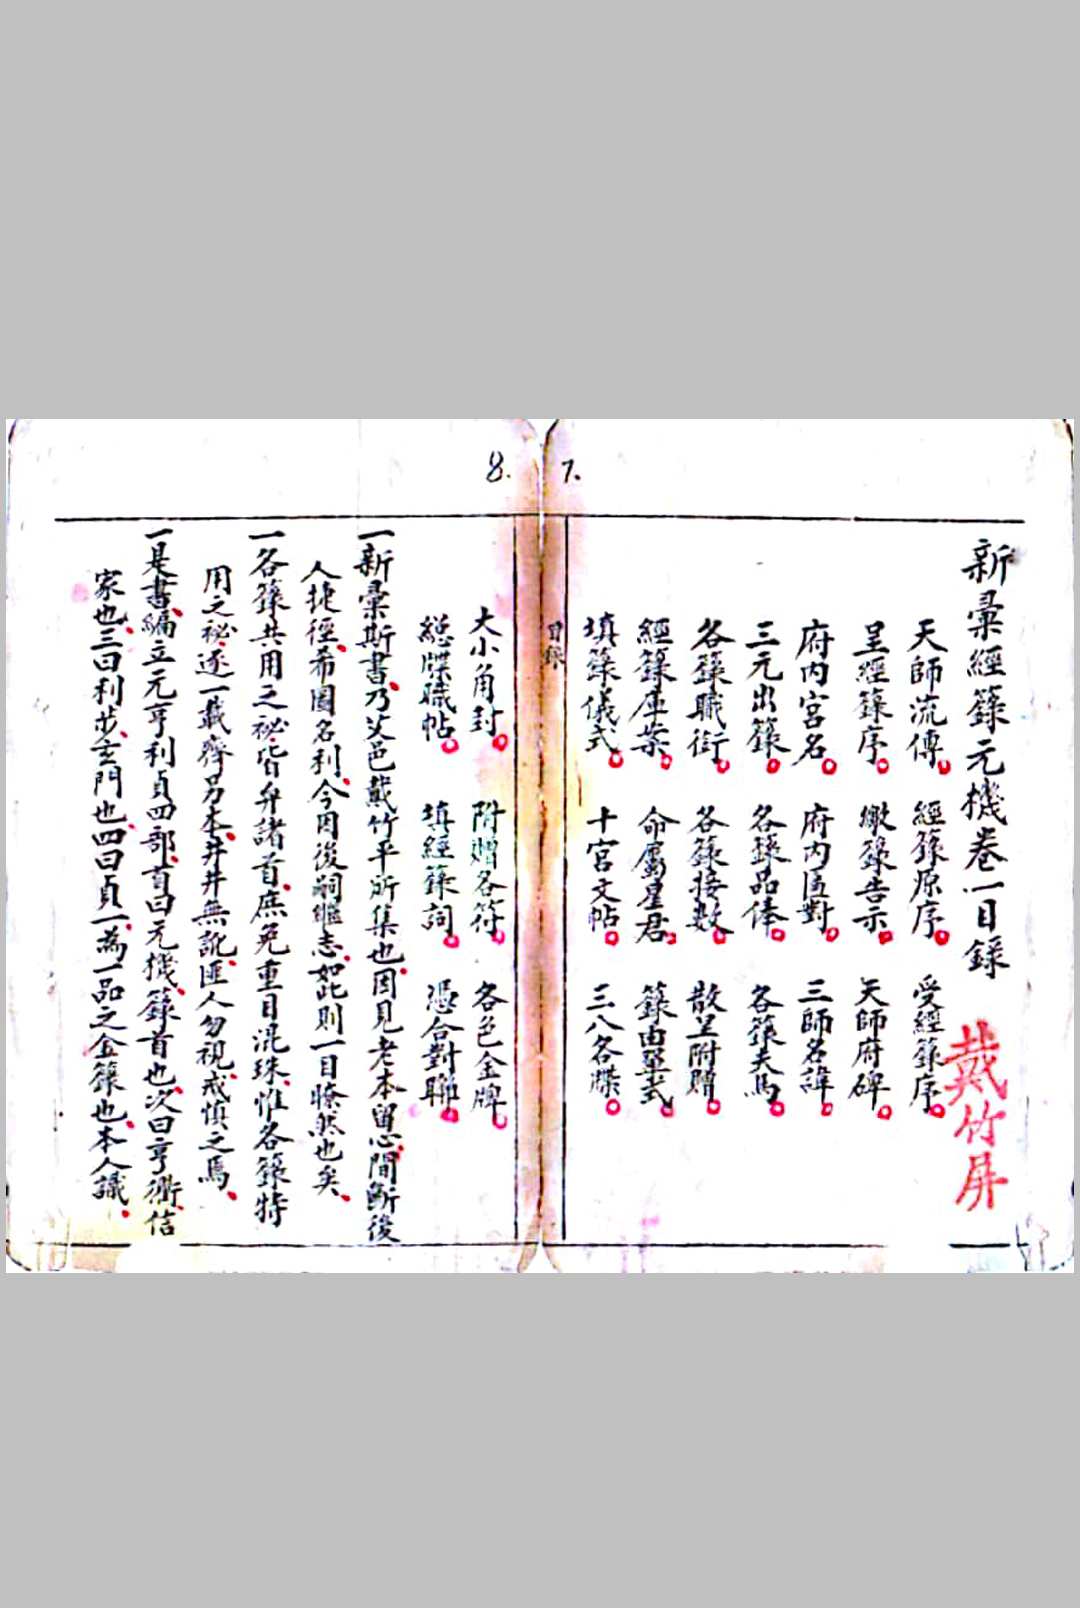 7.
新彙經籙元機卷一目錄
戴竹屏
天師流傳 經籙原序 受經籙序
呈經籙序 繳籙告示 天師府碑
府內宮名 府內匾對 三師名諱
三元出籙 各籙品俸 各籙夫馬
各籙職銜 各籙接數 散呈附贈
經籙庫案 命屬星君 籙由單式
填籙儀式 十宮文帖 三八各牒
目錄
8.
大小角封 附贈各符 各色金牌
總牒職帖 填經籙詞 憑合對聯
一新彙斯書乃艾邑戴竹平所集也因見老本留心間斷後
人捷徑希圖名利今因後嗣繼志如此則一目暸然也矣
一各籙共用之祕皆弁諸首庶免重目混珠惟各籙特
用之祕逐一載齊另本井井無訛匪人勿視戒慎之焉
一是書編立元亨利貞四部首曰元機籙首也次曰亨衢信
家也三曰利步玄門也四曰貞一為一品之金籙也本人識